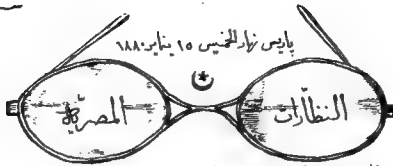 باريس نهار الخميس ١٥ يناير ١٨٨٠
النظارات المصرية